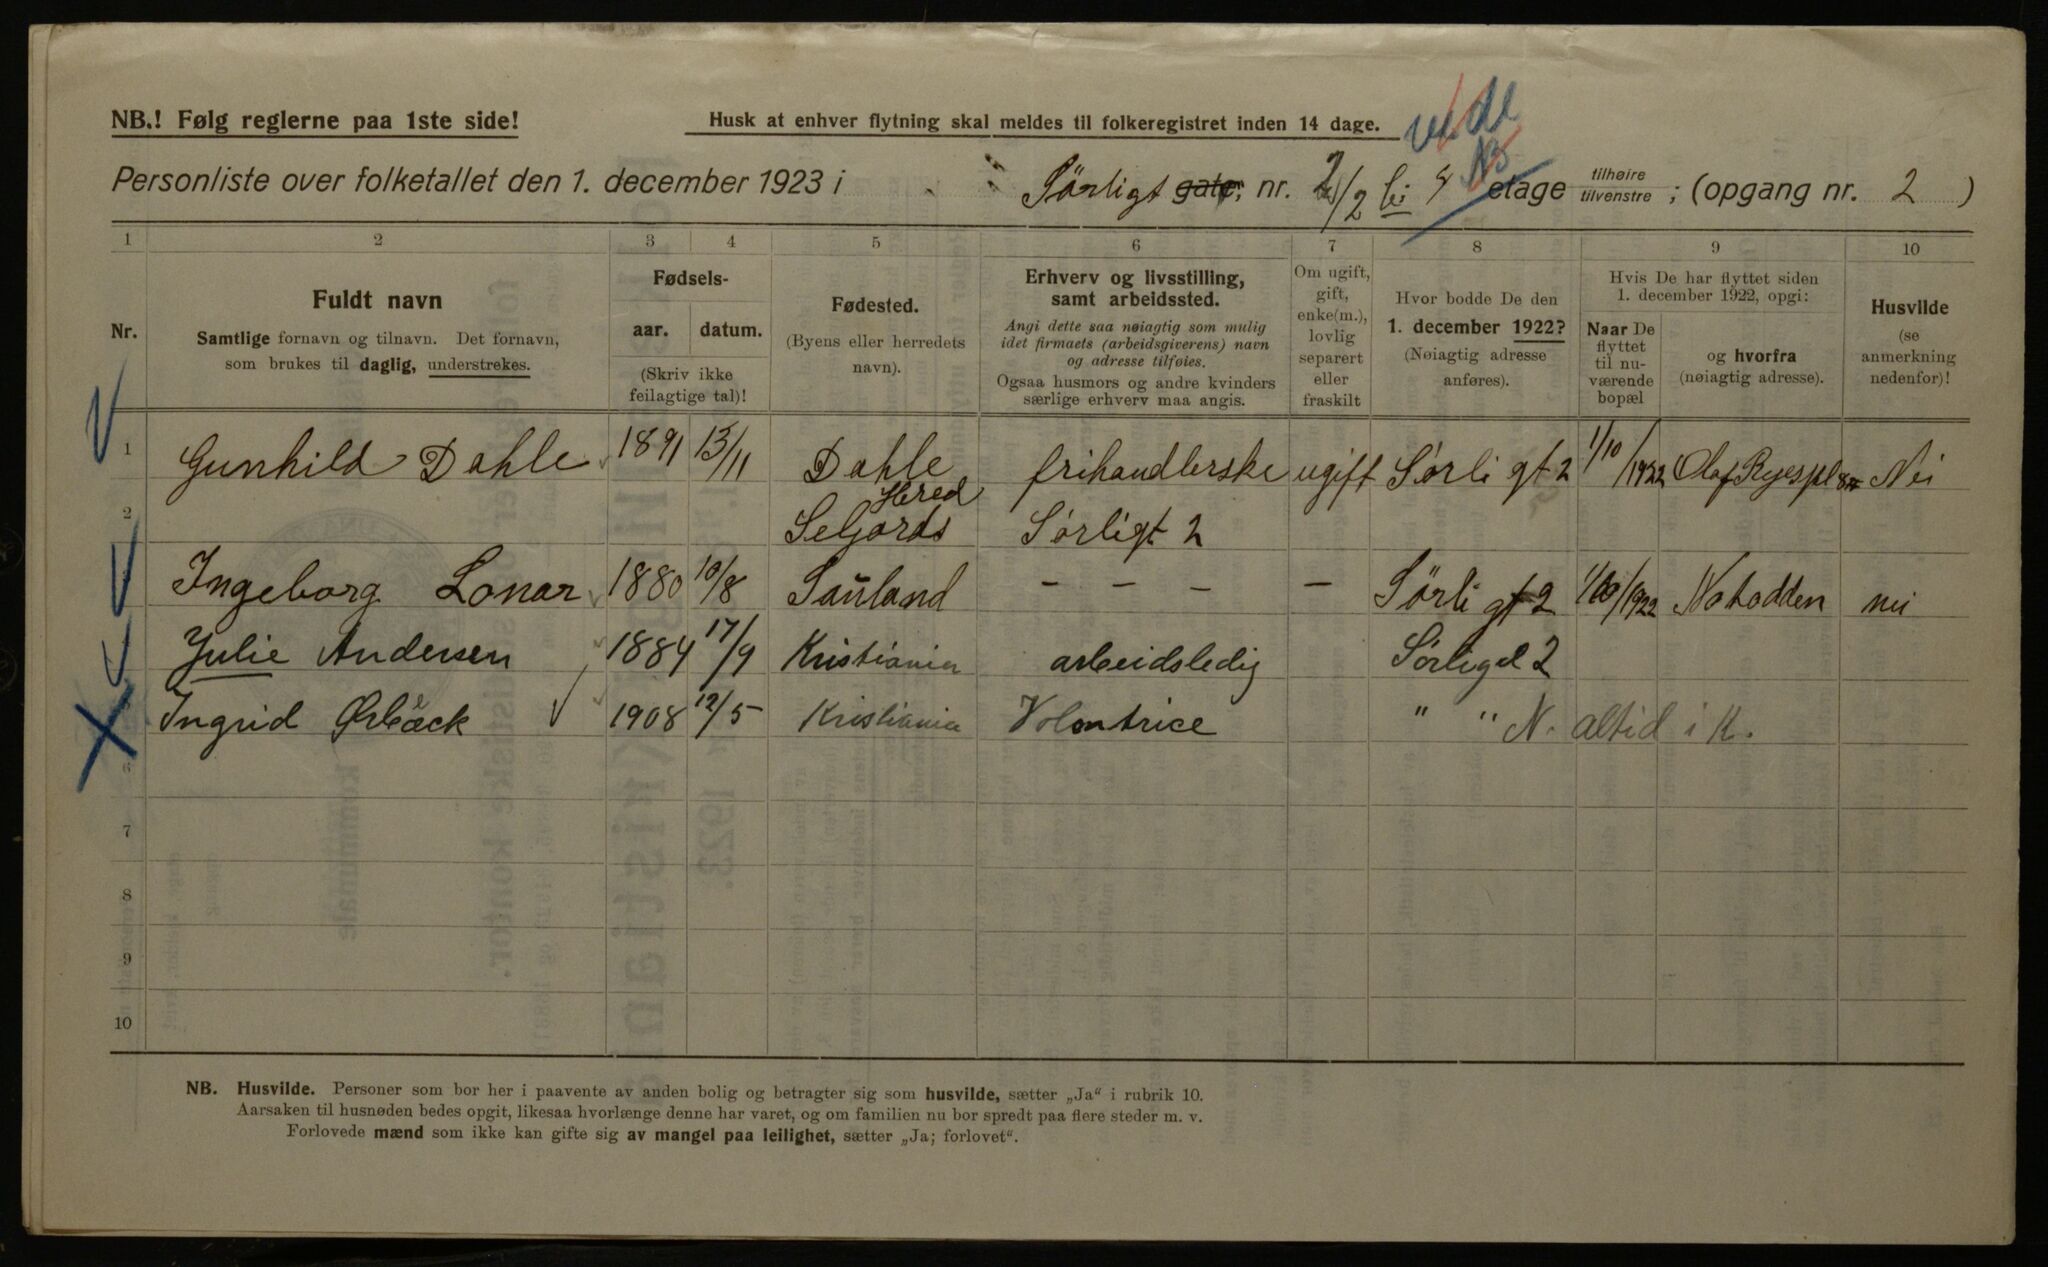 NB.! Følg reglerne paa 1ste side!
Husk at enhver flytning skal meldes til folkeregistret inden 14 dage.
Personliste over folketallet den 1. december 1923 i Sörligt gate, nr. 2/2 etage tilhøire tilvenstre ; (opgang nr. 2 )
1 2 3 4 5 6 7 8 9 10
Nr.
Fuldt navn
Samtlige fornavn og tilnavn. Det fornavn,
som brukes til daglig, understrekes.
Fødsels-
aar. datum.
(Skriv ikke
feilagtige tal)!
Fødested.
(Byens eller herredets
navn).
Erhverv og livsstilling,
samt arbeidssted.
Angi dette saa nøiagtig som mulig
idet firmaets (arbeidsgiverens) navn
og adresse tilføies.
Ogsaa husmors og andre kvinders
særlige erhverv maa angis.
Om ugift,
gift,
enke(m.),
lovlig
separert
eller
fraskilt
Hvor bodde De den
1. december 1922?
(Nøiagtig adresse
anføres).
Hvis De har flyttet siden
1. december 1922, opgi:
Naar De
flyttet
til nu-
værende
bopæl
og hvorfra
(nøiagtig adresse).
Husvilde
(se
anmerkning
nedenfor)!
1 Gunhild Dahle 1891 13/11 Dahle frihandlerske ugift Sørligt 2 1/10/1922 Olaf Ryespl Nei
2 Hered
Seljords Sørligt 2
Ingeborg Lonar 1880 10/8 Sauland - - - - - Sørligt 2 1/10/1922 Notodden nei
Julie Andersen 1884 17/9 Kristiania arbeidsledig Sørligt 2
Ingrid Ørbäck 1908 12/5 Kristiania Volontrice " " N. altid i K.
6
7
8
9
10
NB. Husvilde. Personer som bor her i paavente av anden bolig og betragter sig som husvilde, sætter „Ja“ i rubrik 10.
Aarsaken til husnøden bedes opgit, likesaa hvorlænge denne har varet, og om familien nu bor spredt paa flere steder m. v.
Forlovede mænd som ikke kan gifte sig av mangel paa leilighet, sætter „Ja; forlovet“.